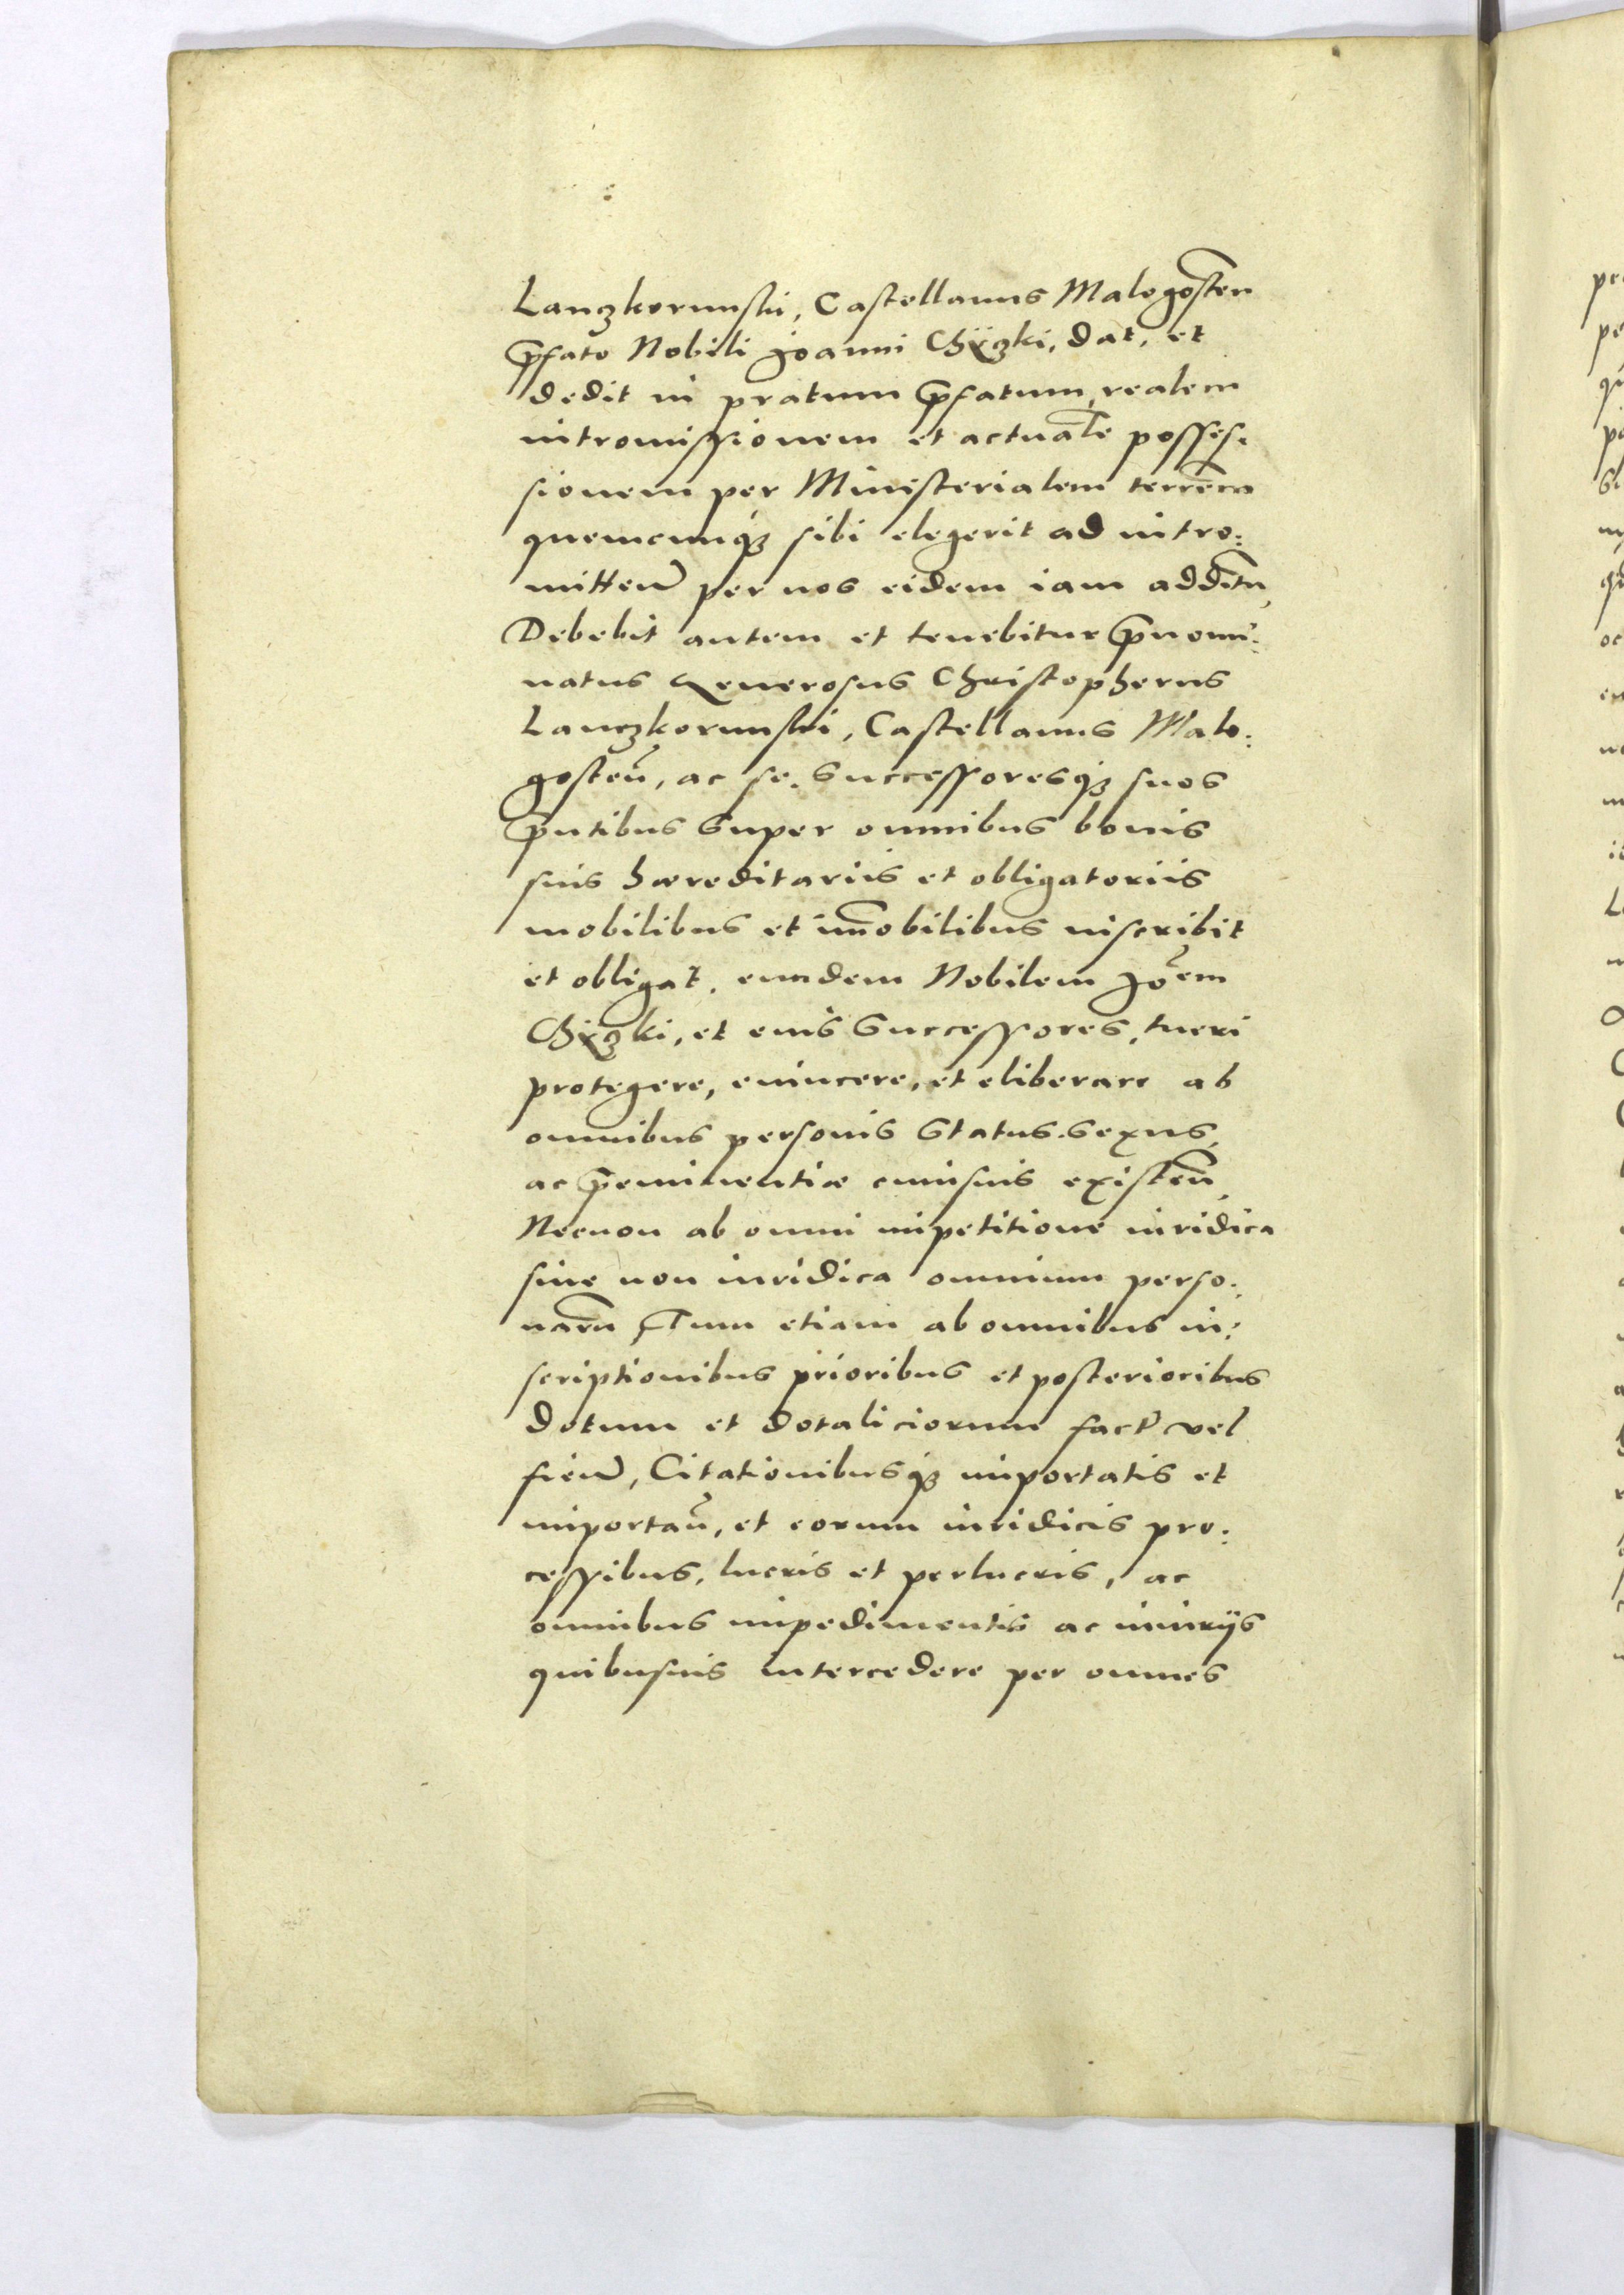 Lanczkorunski, Castellanus Malogosten̄
p̄fato Nobili Joanni Chÿczki, dat, et
dedit in pratum p̄fatum, realem
intromissionem et actualē posses:
sionem per Ministerialem terren̄
quemcunqꝫ sibi elegerit ad intro:
mitten̄ per nos eidem iam additū,
Debebit autem et tenebitur p̄nomi:
natus Generosus Christopherus
Lanczkorunski, Castellanus Malo:
gosten̄, ac se. Successoresqꝫ suos
p̄ntibus super omnibus bonis
suis hæreditariis et obligatoriis
mobilibus et im̄obilibus inscribit
et obligat̄. eundem Nobilem Joēm
Chiczki, et eius Successores, tueri
protegere, euincere, et eliberare ab
omnibus personis Status. Sexus,
ac p̄eminentiæ cuiusuis existen̄,
Necnon ab omni impetitione iuridica
siue non iuridica omnium perso:
narū, Tum etiam ab omnibus in:
scriptionibus prioribus et posterioribus
dotum et dotaliciorum fact̄ vel
fien̄, Citationibusqꝫ importatis et
importan̄, et eorum iuridicis pro:
cessibus, lucris et perlucris, ac
omnibus impedimentis ac iniurijs
quibusuis intercedere per omnes